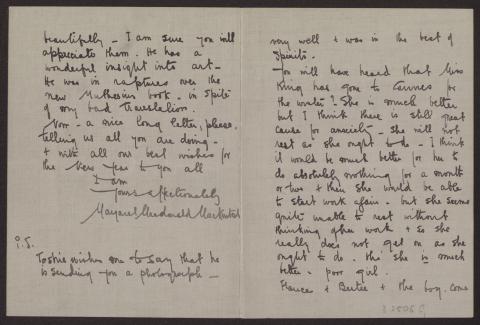 beautifully – I am sure you will
appreciate them. He has a
wonderful insight into art –
He was in raptures over the
new Muthesius book – in spite
of very bad translation.
Now – a nice long letter, please,
telling us all you are doing –
& with all our best wishes for
the New Year to you all
I am
Yours affectionately
Margaret Macdonald Mackintosh
P.S.
Toshie wishes me to say that he
is sending you a photograph –
very well & was in the best of
spirits.
You will have heard that Miss
King has gone to Cannes for
the winter? She is much better
but I think there is still great
cause for anxiety – she will not
rest as she ought to do – I think
it would be much better for her to
do absolutely nothing for a month
or two & then she would be able
to start work again – but she seems
quite unable to rest without
thinking of her work & so she
really does not get on as she
ought to do. tho' she is much
better – poor girl.
Frances & Bertie & the boy. come